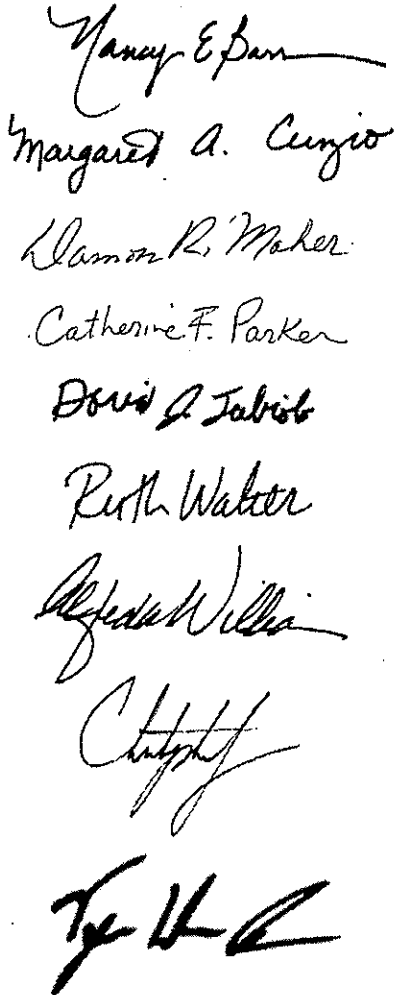 Nancy E Barr
Margaret A. Cunzio
Damon R. Maher
Catherine F. Parker
David J. Tubiolo
Ruth Walter
Alfreda Willia
Christopher
Tyrae